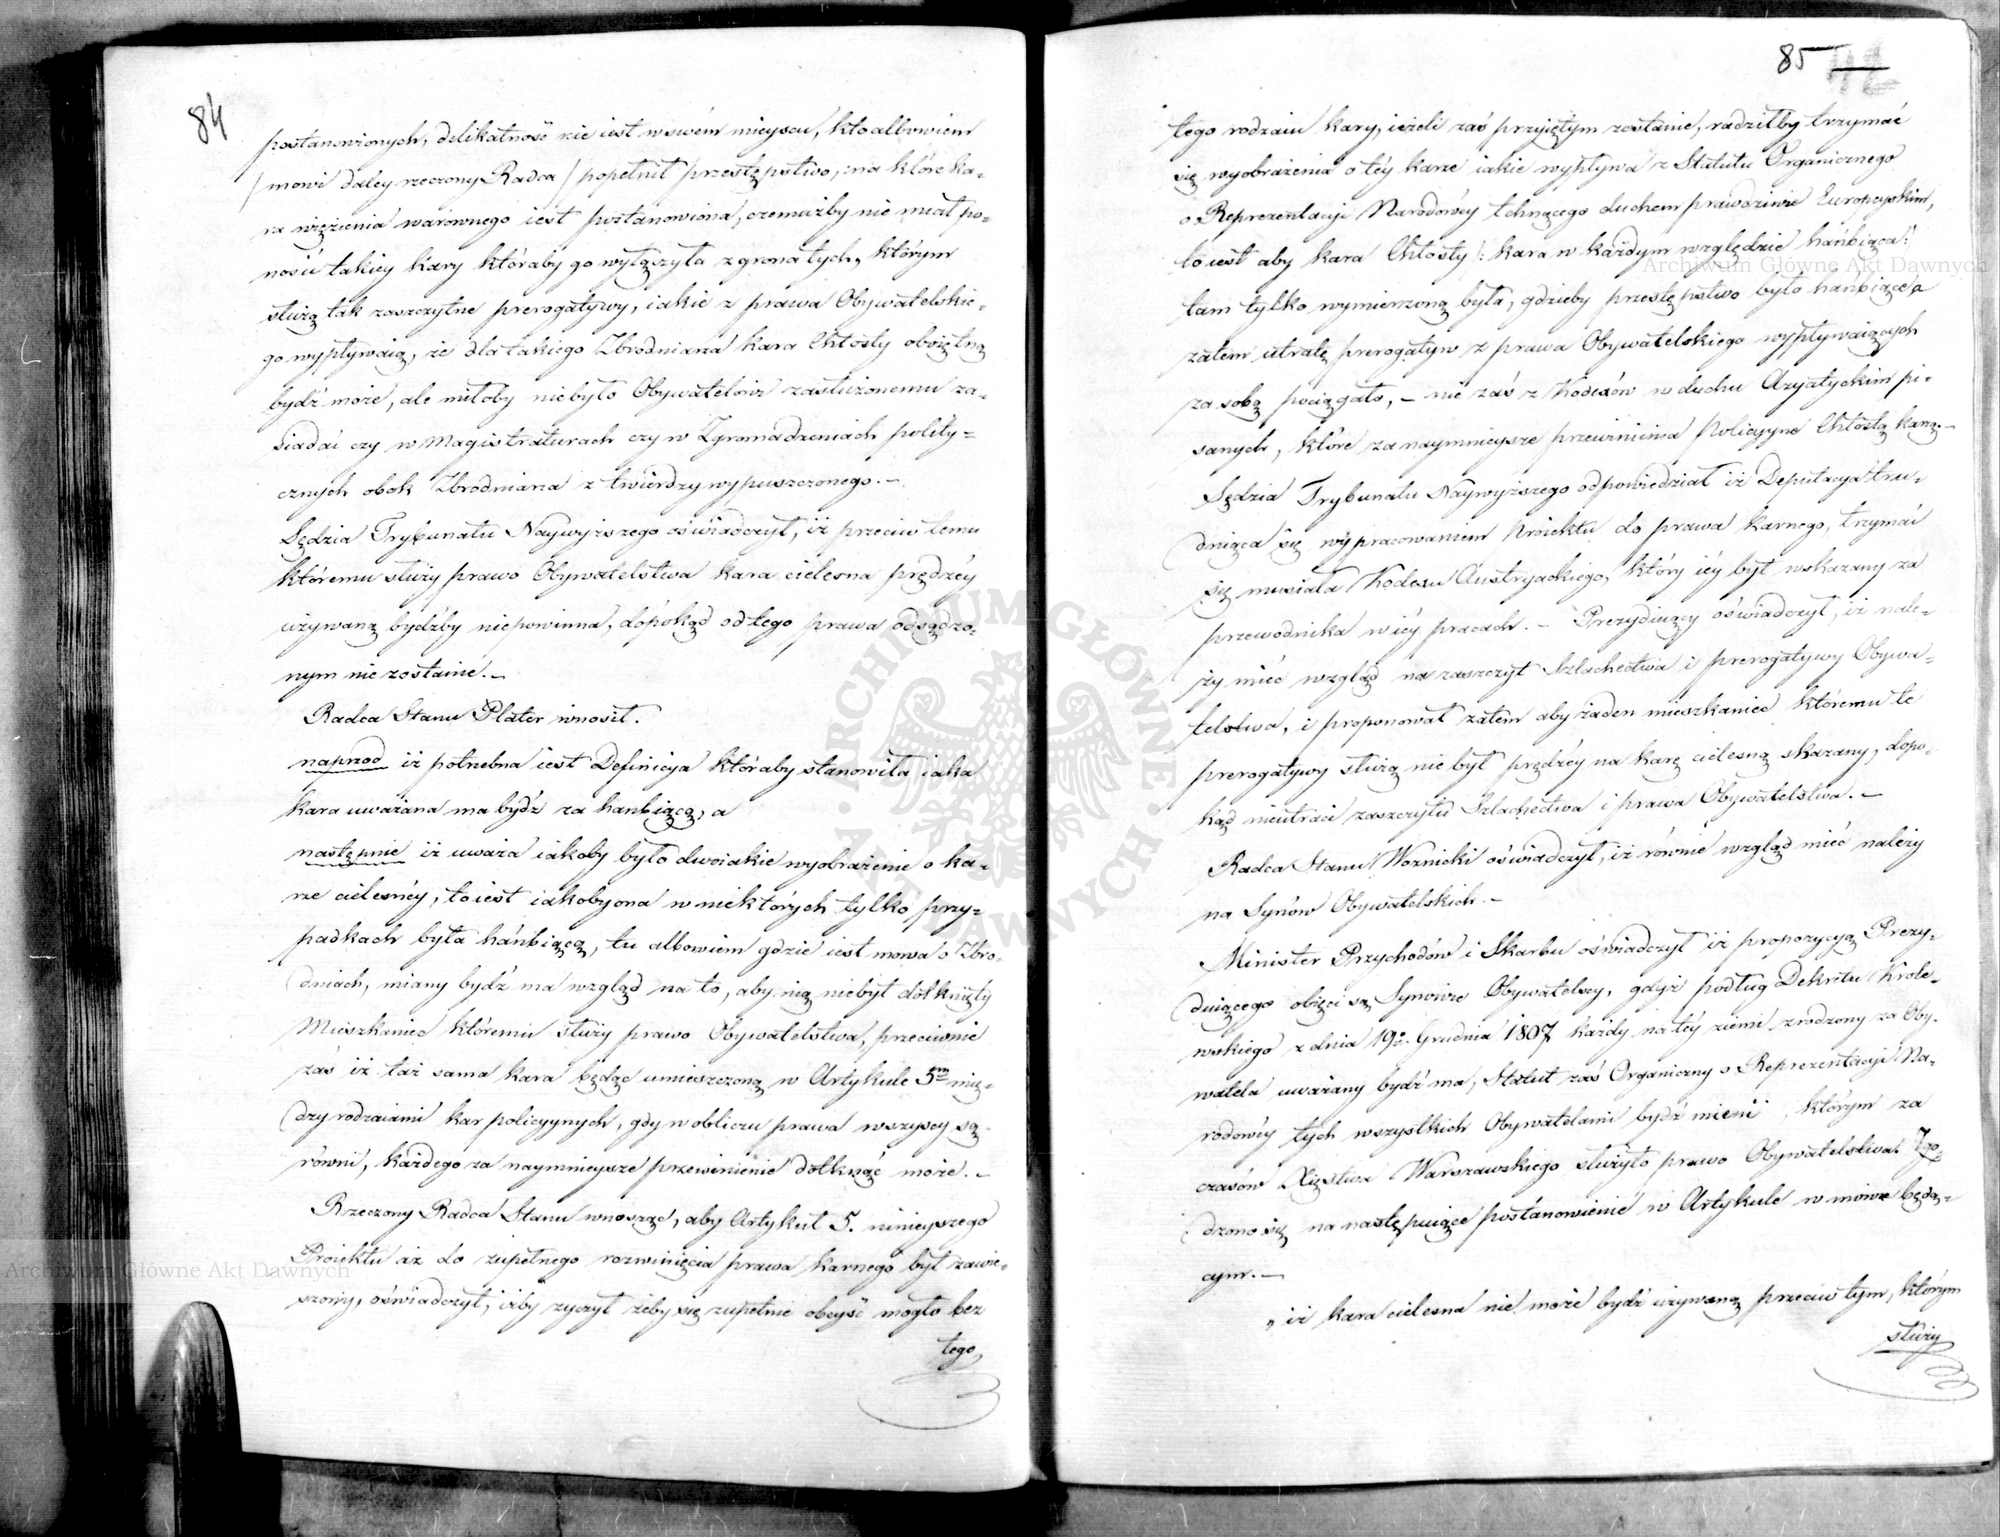 84
postanowionych, delikatność nie iest w swém mieyscu, kto albowiem
/mowi daley rzeczony Radca/ popełnił przestępstwo, na które ka-
ra więzienia warownego iest postanowiona, czemużby nie miał po-
nosić takiey kary któraby go wyłączyła z grona tych, którym
służą tak zaszczytne prerogatywy, iakie z prawa Obywatelskie-
go wypływaią, że dla takiego Zbrodniarza kara Chłosty oboiętną
bydź może, ale miłoby niebyło Obywatelowi zasłużonemu za-
siadać czy w Magistraturach czy w Zgromadzeniach polity-
cznych obok Zbrodniarza z twierdzy wypuszczonego. —
Sędzia Trybunału Naywyższego oświadczył, iż przeciw temu
któremu służy prawo Obywatelstwa kara cielesna prędzéy
używaną bydźby niepowinna, dopókąd od tego prawa odsądzo-
nym nie zostanie. —
Radca Stanu Plater wnosił.
naprzod iż potrzebna iest Definicya któraby stanowiła iaka
kara uważana ma bydź za hanbiącą, a
następnie iż uważa iakoby było dwoiakie wyobrażenie o ka-
rze cielesnéy, to iest iakoby ona w niektórych tylko przy-
padkach była hańbiącą, tu albowiem gdzie iest mowa o Zbro-
dniach, miany bydź ma wzgląd na to, aby nią niebył dotknięty
Mieszkaniec któremu służy prawo Obywatelstwa, przeciwnie
zaś iż taż sama kara będąc umieszczoną w Artykule 5m mię-
dzy rodzaiami kar policyynych, gdy w obliczu prawa wszyscy są
równi, każdego za naymnieysze przewinienie dotknąć może. —
Rzeczony Radca Stanu wnosząc, aby Artykuł 5. ninieyszego
Proiektu aż do zupełnego rozwinięcia prawa karnego był zawie-
szony, oświadczył, iżby zyczył żeby się zupełnie obeyść mogło bez
tego
85
tego rodzaiu kary, ieżeli zaś przyiętym zostanie, radziłby trzymać
się wyobrażenia o téy karze iakie wypływa z Statutu Organicznego
o Reprezentacyi Narodowéy tchnącego duchem prawdziwie Europeyskim,
to iest aby kara Chłosty /: kara w każdym względzie hańbiąca :/
tam tylko wymierzoną była, gdzieby przestępstwo było hańbiące a
zatem utratę prerogatyw z prawa Obywatelskiego wypływaiących
za sobą pociągało, — nie zaś z Kodexów w duchu Azyatyckim pi-
sanych, które za naymnieysze przewinienia Policyyne Chłostą karzą. —
Sędzia Trybunału Naywyższego odpowiedział iż Deputacya tru-
dniąca się wypracowaniem Proiektu do prawa karnego, trzymać
się musiała Kodexu Austryackiego, który iéy był wskazany za
przewodnika w iéy pracach. — Prezyduiący oświadczył, iż nale-
ży mieć wzgląd na zaszczyt Szlachectwa i prerogatywy Obywa-
telstwa, i proponował zatem aby żaden mieszkaniec któremu te
prerogatywy służą nie był prędzéy na karę cielesną skazany, dopo-
kąd nieutraci zaszczytu Szlachectwa i prawa Obywatelstwa. —
Radca Stanu Woznicki oświadczył, iż równie wzgląd mieć należy
na Synów Obywatelskich. —
Minister Przychodów i Skarbu oświadczył iż propozycyą Prezy-
duiącego obięci są Synowie Obywatelscy, gdyż podług Dekretu Króle-
wskiego z dnia 19o. Grudnia 1807 każdy na téy ziemi zrodzony za Oby-
watela uważany bydź ma, Statut zaś Organiczny o Reprezentacyi Na-
rodowéy tych wszystkich Obywatelami bydź mieni, którym za
czasów Xięstwa Warszawskiego służyło prawo Obywatelstwa. Zgo-
dzono się na następuiące postanowienie w Artykule w mowie będą-
cym. —
„ iż kara cielesna nie może bydź używaną przeciw tym, którym
służy
Archiwum Główne Akt Dawnych
Archiwum Główne Akt Dawnych
ARCHIWUM GŁÓWNE AKT DAWNYCH